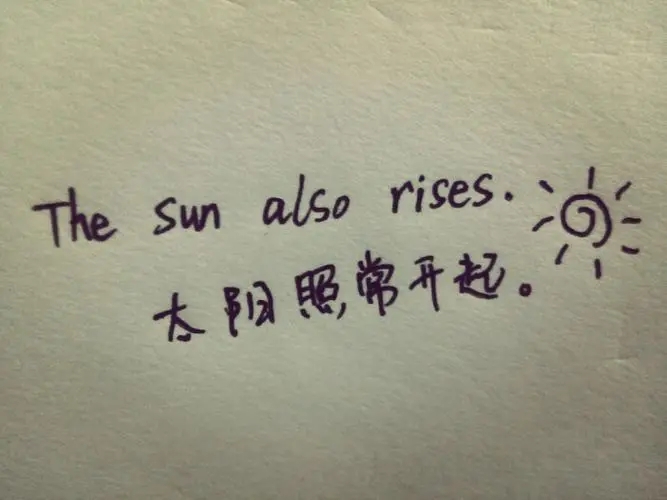 The sun also rises.
太阳照常开起。